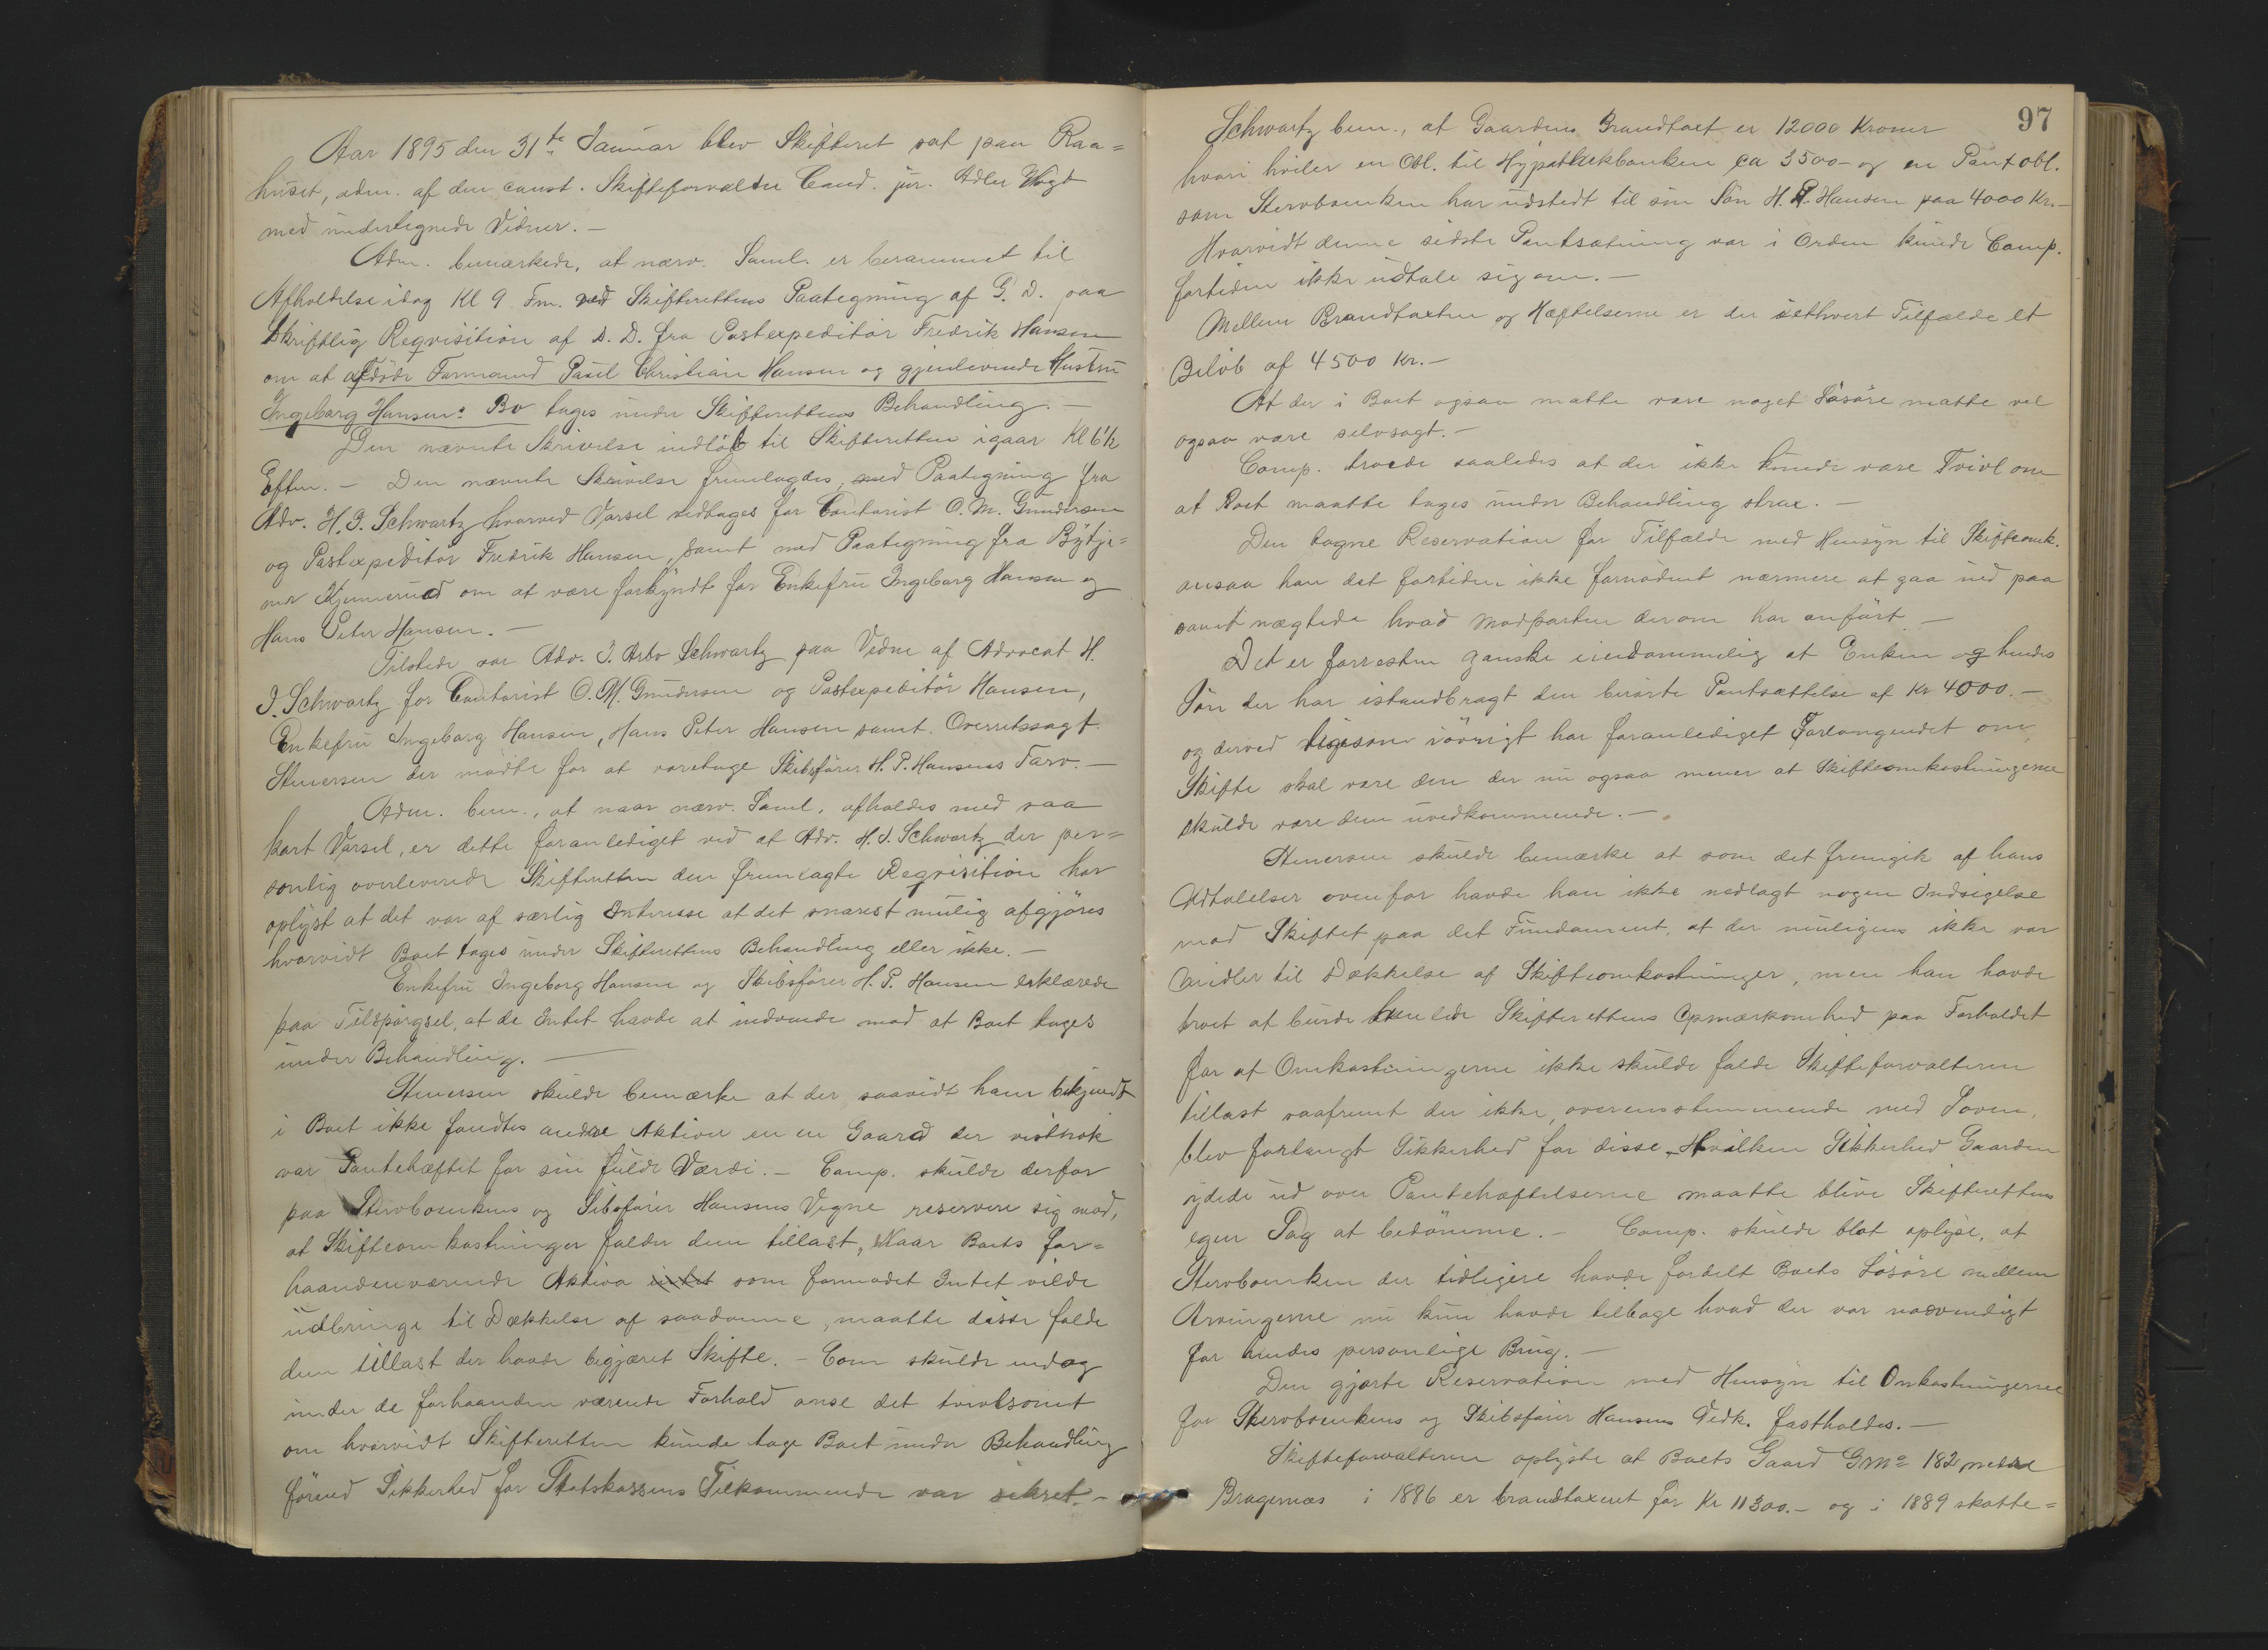 Aar 1895 den 31te Januar blev Skifteret sat paa Raa=
huset, adm. af den const. Skifteforvalter Cand. jur. Adler Vogt
med undertegnede Vidner. —
Adm. bemærkede, at nærv. Saml. er berammet til
Afholdelse idag Kl 9 Fm. ved Skifterettens Paategning af G. D. paa
Skriftlig Reqvisition af D. D. fra Postexpeditör Fredrik Hansen
om at afdöde Formand Paul Christian Hansen og gjenlevende Hustru
Ingeborg Hansens Bo tages under Skifterettens Behandling. —
Den nævnte Skrivelse indlöb til Skifteretten igaar Kl 6½
Efterm. — Den nævnte Skrivelse fremlagdes, med Paategning fra
Adv. H. J. Schwartz hvorved Varsel vedtages for Contorist O. M. Gundersen
og Postexpeditör Fredrik Hansen, samt med Paategning fra Bytje=
ner Kjennerud om at være forkyndt for Enkefru Ingeborg Hansen og
Hans Peter Hansen. —
Tilstede var Adv. J. Arbo Schwartz paa Vegne af Advocat H.
J. Schwartz for Contorist O. M. Gundersen og Postexpeditör Hansen,
Enkefru Ingeborg Hansen, Hans Peter Hansen samt Overretssagf.
Stenersen der mödte for at varetage Skibsförer H. P. Hansens Tarv. —
Adm. bem., at naar nærv. Saml. afholdes med saa
kort Varsel, er dette foranlediget ved at Adv. H. J. Schwartz der per=
sonlig overleverede Skifteretten den fremlagte Reqvisition har
oplyst at det var af særlig Interesse at det snarest mulig afgjöres
hvorvidt Boet tages under Skifterettens Behandling eller ikke. —
Enkefru Ingeborg Hansen og Skibsförer H. P. Hansen erklærede
paa Tilspörgsel, at de Intet havde at indvende mod at Boet tages
under Behandling. —
Stenersen skulde bemærke at der saavidt ham bekjendt
i Boet ikke fandtes andre Aktiver en en Gaard der vistnok
var Pantehæftet for sin fulde Værdi. — Comp. skulde derfor
paa Stervboenkens og Sibsförer Hansens Vegne reservere sig mod,
at Skifteomkostninger falder dem tillast, Naar Boets for=
haandenværende Aktiva intet som formodet Intet vilde
udbringe til Dækkelse af saadanne, maatte disse falde
dem tillast der havde begjæret Skifte. — Com skulde endog
under de forhaanden værende Forhold anse det tvivlsomt
om hvorvidt Skifteretten kunde tage Boet under Behandling
förend Sikkerhed for Statskassens Tilkommende var sikret. —
97
Schwartz bem., at Gaardens Brandtaxt er 12000 Kroner
hvori hviler en Obl. til Hypothekbanken ca 3500 — og en Pantobl.
som Stervboenken har udstedt til sin Sön H. P. Hansen paa 4000 Kr. —
Hvorvidt denne sidste Pantsætning var i Orden kunde Comp.
fortiden ikke udtale sig om. —
Mellem Brandtaxten og Hæftelserne er der iethvert Tilfælde et
Belöb af 4500 Kr. —
At der i Boet ogsaa matte være noget Lösöre matte vel
ogsaa være selvsagt. —
Comp. troede saaledes at der ikke kunde være Tvivl om
at Boet maatte tages under Behandling strax. —
Den tagne Reservation for Tilfælde med Hensyn til Skifteomk.
ansaa han det fortiden ikke fornödent nærmere at gaa ind paa
samt nægtede hvad Modparten derom har anfört —
Det er forresten ganske eiendommelig at Enken og hendes
Sön der har istandbragt den berörte Pantsættelse af Kr 4000. —
og derved ligesom iövrigt har foranlediget Forlangendet om
Skifte skal være dem der nu ogsaa mener at Skifteomkostningerne
skulde være dem uvedkommende. —
Stenersen skulde bemærke at som det fremgik af hans
Udtalelser ovenfor havde han ikke nedlagt nogen Indsigelse
mod Skiftet paa det Fundament, at der muligens ikke var
Midler til Dækkelse af Skifteomkostninger, men han havde
troet at burde henlede Skifterettens Opmærksomhed paa Forholdet
for at Omkostningerne ikke skulde falde Skifteforvalteren
tillast saafremt der ikke, overensstemmende med Loven,
blev forlangt Sikkerhed for disse, Hvilken Sikkerhed Gaarden
ydede ud over Pantehæftelserne maatte blive Skifterettens
egen Sag at bedömme. — Comp. skulde blot oplyse, at
Stervboenken der tidligere havde fordelt Boets Lösöre mellem
Arvingerne nu kun havde tilbage hvad der var nödvendigt
for hendes personlige Brug. —
Den gjorte Reservation med Hensyn til Omkostningerne
for Stervboenkens og Skibsförer Hansens Vedk. fastholdes. —
Skifteforvalteren oplyste at Boets Gaard Gno 182 nedre
Bragernæs i 1886 er brandtaxeret for Kr 11300. — og i 1889 skatte=